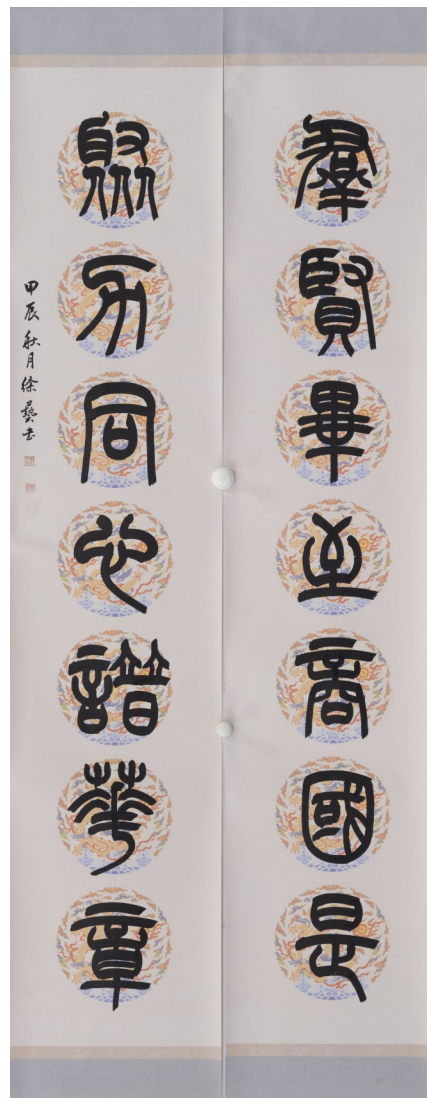 羣賢畢至商國是
聚力同心譜華章
甲辰秋月徐藝书